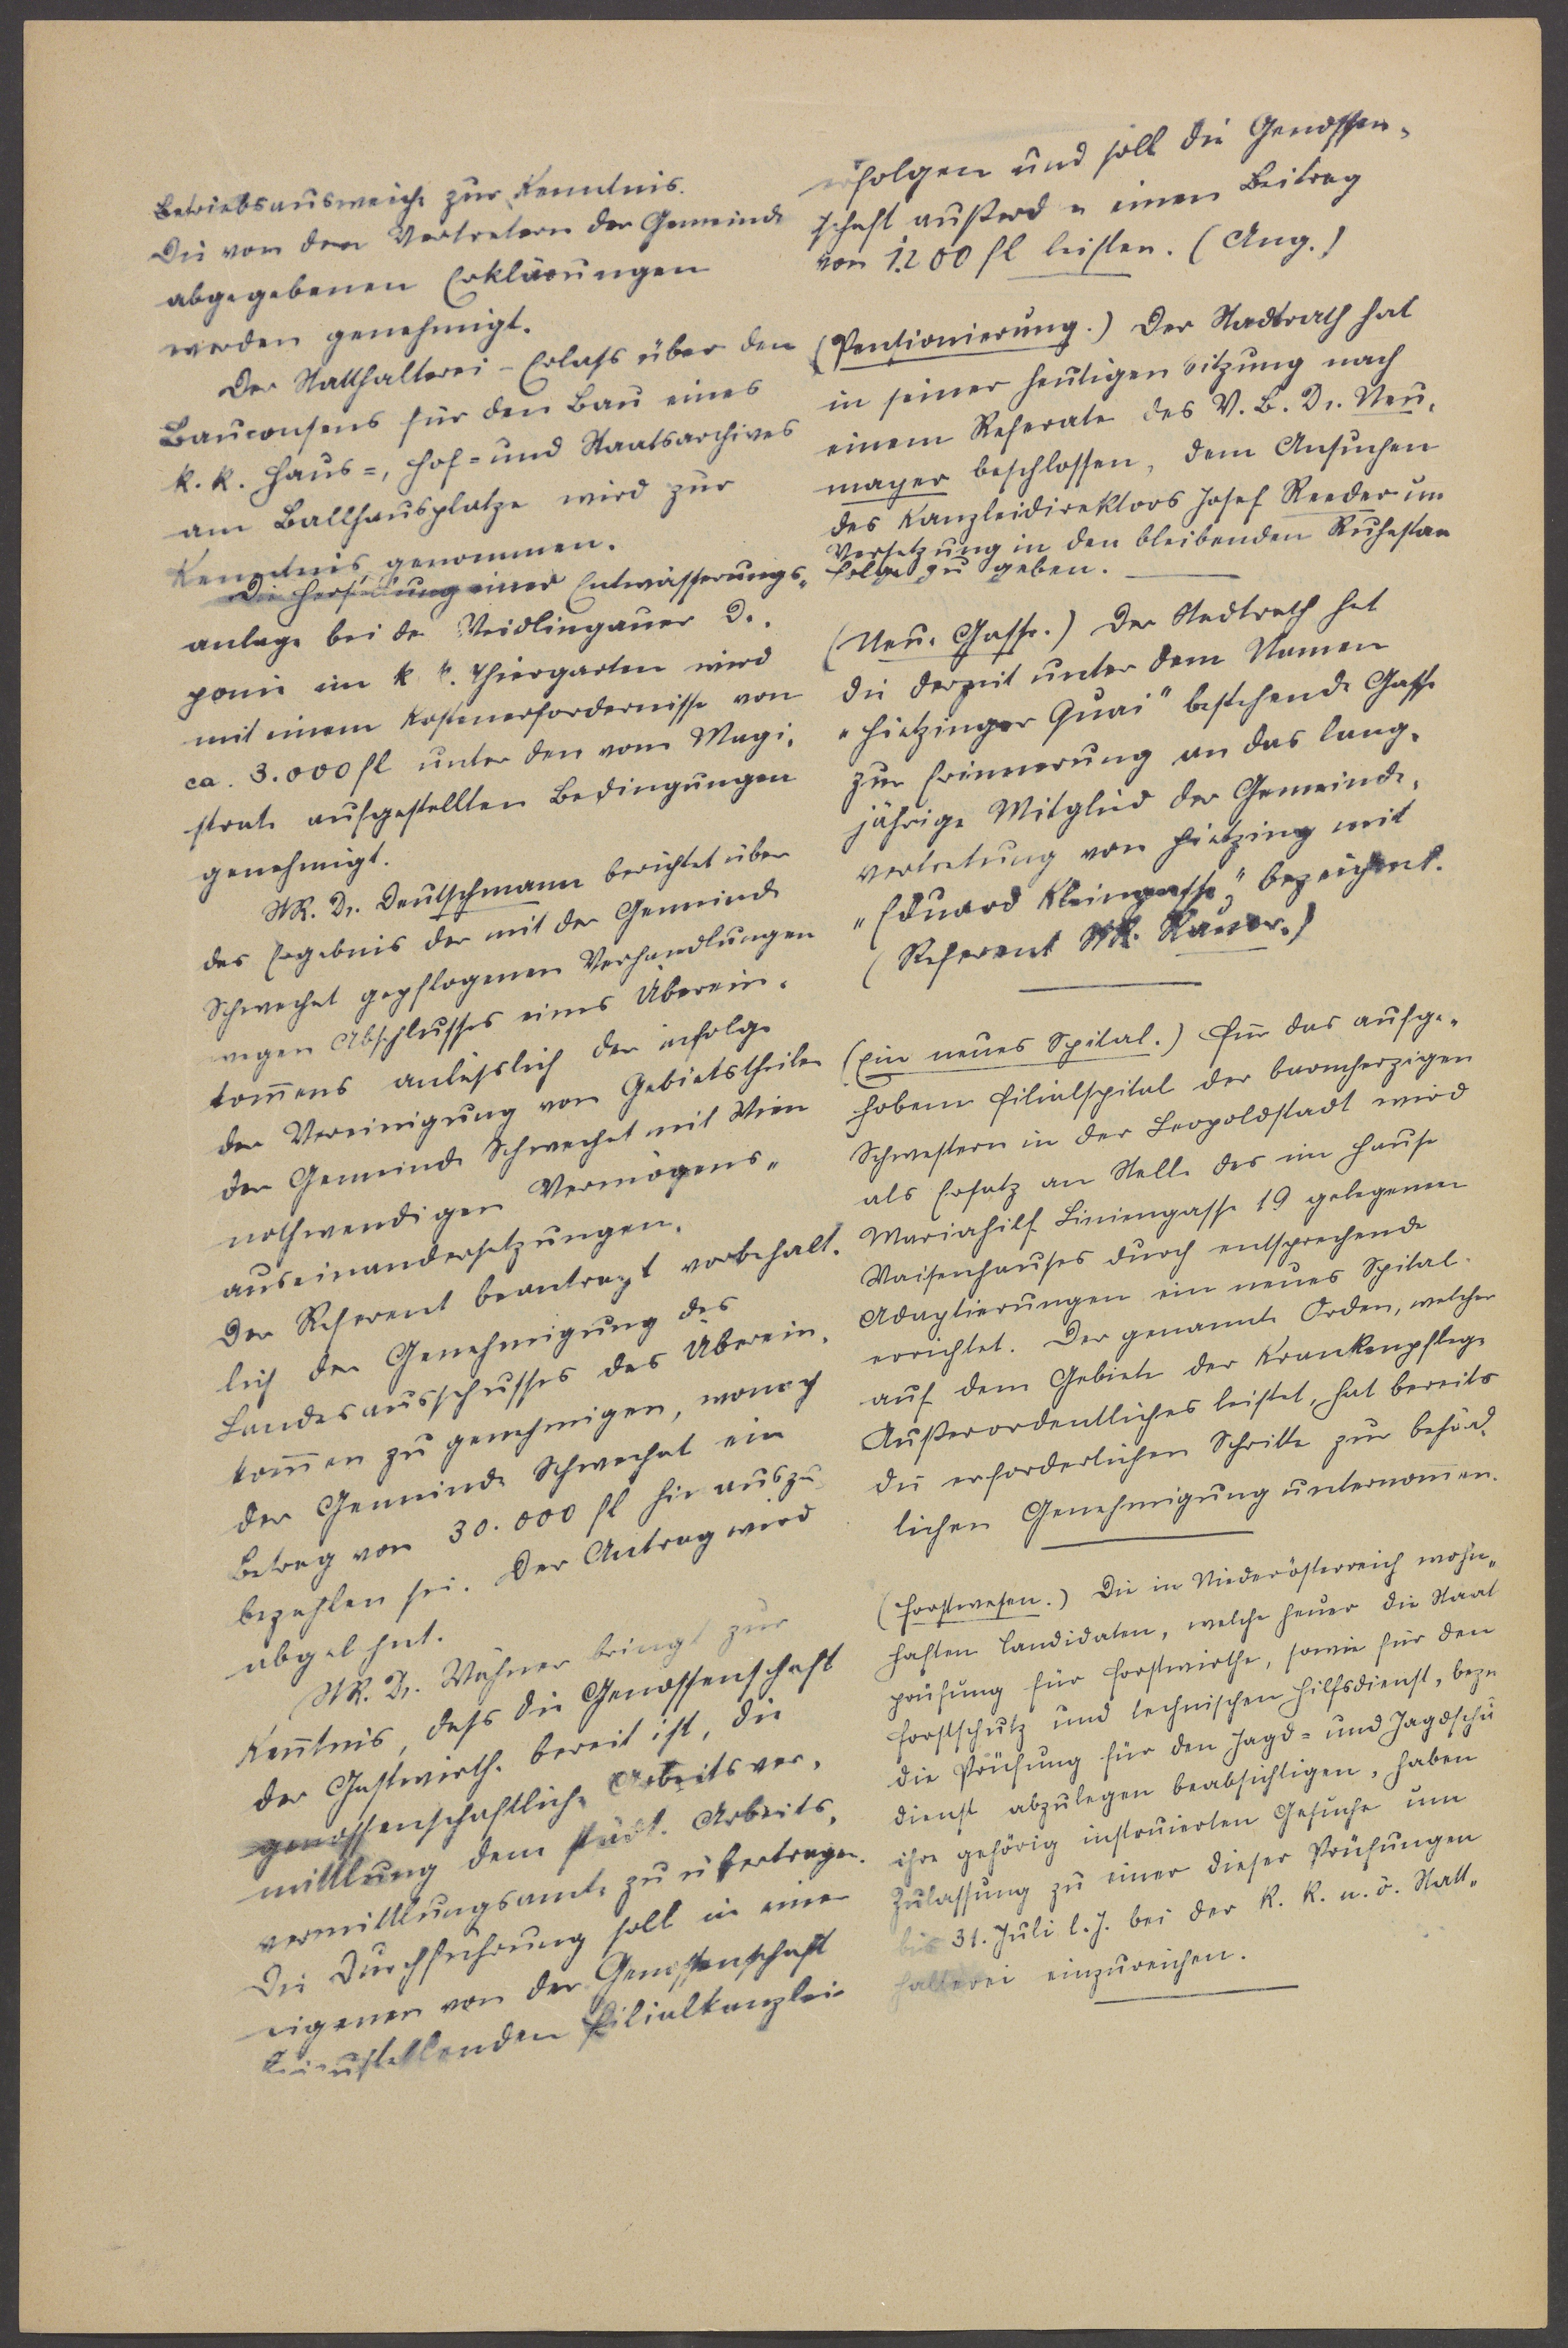 Betriebsausweiche zur Kenntnis.
Die von den Vertretern der Gemeinde
abgegebenen Erklärungen
werden genehmigt.
Der Statthalterei-Erlaß über den
Bauconsens für den Bau eines
k. k. Haus=, Hof= und Staatsarchives
am Ballhausplatze wird zur
Kenntnis genommen.
Die Herstellung einer Entwässerungs-
anlage bei der Weidlingauer De-
ponie im k. k. Thiergarten wird
mit einem Kostenerfordernisse von
ca. 3.000 fl unter den vom Magi-
strate aufgestellten Bedingungen
genehmigt.
StR. Dr. Deutschmann berichtet über
das Ergebnis der mit der Gemeinde
Schwechat gepflogenen Verhandlungen
wegen Abschlusses eines Überein-
kom̅ens anläßlich der infolge
der Vereinigung von Gebietstheilen
der Gemeinde Schwechat mit Wien
nothwendigen Vermögens-
auseinandersetzungen.
Der Referent beantragt vorbehalt-
lich der Genehmigung des
Landesausschusses das Überein-
kom̅en zu genehmigen, wonach
der Gemeinde Schwechat ein
Betrag von 30.000 fl hinauszu-
bezahlen sei. Der Antrag wird
abgelehnt.
StR. Dr. Wähner bringt zur
Ken̅tnis, daß die Genossenschaft
der Gastwirthe bereit ist, die
genossenschaftliche Arbeitsver-
mittlung dem städt. Arbeits-
vermittlungsamte zu übertragen.
Die Durchführung soll in einer
eigenen von der Genossenschaft
beizustellenden Filialkanzlei
erfolgen und soll die Genossen-
schaft außerd n einen Beitrag
von 1200 fl leisten. (Ang.)
(Pensionierung.) Der Stadtrath hat
in seiner heutigen Sitzung nach
einem Referate des V. B. Dr. Neu-
mayer beschlossen, dem Ansuchen
des Kanzleidirektors Josef Reeder um
Versetzung in den bleibenden Ruhestan
Folge zu geben.
(Neue Gasse.) Der Stadtrath hat
die derzeit unter dem Namen
"Hietzinger Quai" bestehende Gasse
zur Erinnerung an das lang-
jährige Mitglied der Gemeinde-
vertretung von Hietzing mit
"Eduard Kleingasse" bezeichnet.
(Referent StR. Rauer.)
(Ein neues Spital.) Für das aufge-
hobene Filialspital der barmherzigen
Schwestern in der Leopoldstadt wird
als Ersatz an Stelle des im Hause
Mariahilf Liniengasse 19 gelegenen
Waisenhauses durch entsprechende
Adaptierungen ein neues Spital
errichtet. Der genannte Orden, welcher
auf dem Gebiete der Krankenpflege
Außerordentliches leistet, hat bereits
die erforderlichen Schritte zur behörd-
lichen Genehmigung unternom̅en.
(Forstwesen.) Die in Niederösterreich wohn-
haften Candidaten, welche heuer die Staat
prüfung für Forstwirthe, sowie für den
Forstschutz und technischen Hilfsdienst, bezw
die Prüfung für den Jagd= und Jagdschu
dienst abzulegen beabsichtigen, haben
ihre gehörig instruierten Gesuche um
Zulassung zu einer dieser Prüfungen
bis 31. Juli l. J. bei der k. k. n. ö. Statt-
halterei einzureichen.